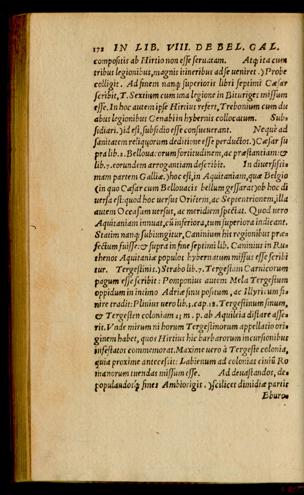 172 IN LIB. VIII. DE BEL. GAL.
compositis ab Hirtio non esse seruatam. Atq́ ita cum
tribus legionibus, magnis itineribus ad se ueniret.) Probe
colligit. Ad finem nanq; superioris libri septimi Cæsar
scribit, T. Sextium cum una legione in Bituriges missum
esse. In hoc autem ipse Hirtius refert, Trebonium cum du
abus legionibus Genabi in hybernis collocatum. Sub-
sidiari.) id est, subsidio esse consueuerant. Neque ad
sanitatem reliquorum deditione esse perductos.) Cæsar su
pra lib. 2. Bellouacorum fortitudinem, ac præstantiam: &
lib. 7. eorundem arrogantiam describit. In diuersissi-
mam partem Galliæ.) hoc est, in Aquitaniam, quæ Belgio
(in quo Cæsar cum Bellouacis bellum gesserat) ob hoc di
uersa est: quod hæc uersus Orientem, ac Septentrionem, illa
autem Occasum uersus, ac meridiem spectat. Quod uero
Aquitaniam innuat, cù inferiora, tum superiora indicant.
Statim nanq; subiungitur, Caninium his regionibus præ-
fectum fuisse: & supra in fine septimi lib. Caninius in Ru
thenos Aquitaniæ populos hybernatum missus esse scribi
tur. Tergestinis.) Strabo lib. 7. Tergestam Carnicorum
pagum esse scribit: Pomponius autem Mela Tergestum
oppidum in intimo Adriæ sinu positum, ac Illyricum fi-
nire tradit: Plinius uero lib. 3. cap. 18. Tergestinum sinum,
& Tergesten coloniam 23 m. p. ab Aquileia distare asse-
rit. Vnde mirum ni horum Tergestinorum appellatio ori-
ginem habet, quos Hirtius hic barbarorum incursionibus
infestatos commemorat. Maxime uero à Tergeste colonia,
quia proxime antecessit: Labienum ad colonias ciuiũ Ro
manorum tuendas missum esse. Ad deuastandos, de-
populandosq́; fines Ambiorigis.) scilicet dimidiæ partis
Eburo-